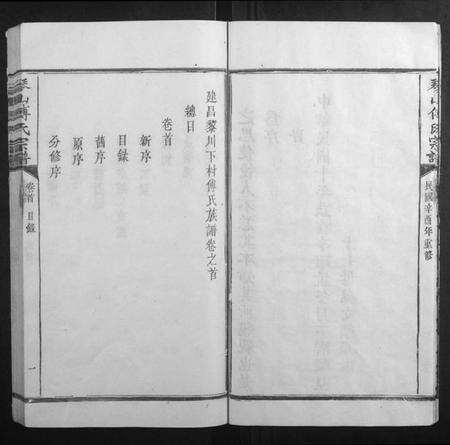 琴山傅氏宗譜
民國辛酉年重修
建昌黎川下村傅氏族譜卷之首
總目
卷首
新序
目錄
舊序
原序
分修序
琴山傅氏宗譜
卷首 目錄
一